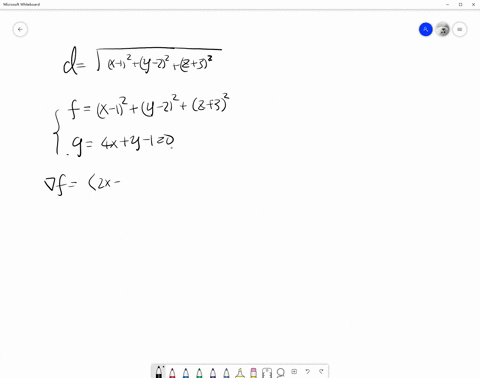 Microsoft Whiteboard
d= √(x-1)²+(y-2)²+(z+3)²
f= (x-1)²+(y-2)²+(z+3)²
g= 4x+y-1=0
∇f= (2x-